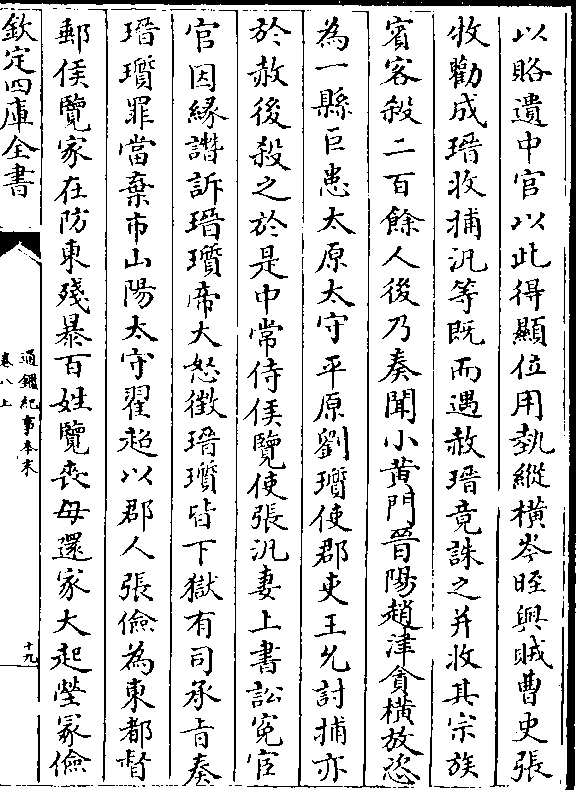 以賂遺中官以此得顯位用埶縱横岑晊與賊曹吏張
牧勸成瑨收捕汎等既而遇赦瑨竟誅之并收其宗族
賓客殺二百餘人後乃奏聞小黄門晉陽趙津貪横放恣
為一縣巨患太原太守平原劉瓆使郡吏王允討捕亦
於赦後殺之於是中常侍侯覽使張汎妻上書訟寃宦
官因縁譖訴瑨瓆帝大怒徵瑨瓆皆下獄有司承旨奏
瑨瓆罪當棄市山陽太守翟超以郡人張儉為東都督
郵侯覽家在防東殘暴百姓覽喪母還家大起塋冡儉
欽定四庫全書
通鑑紀事本末
卷八上
十九